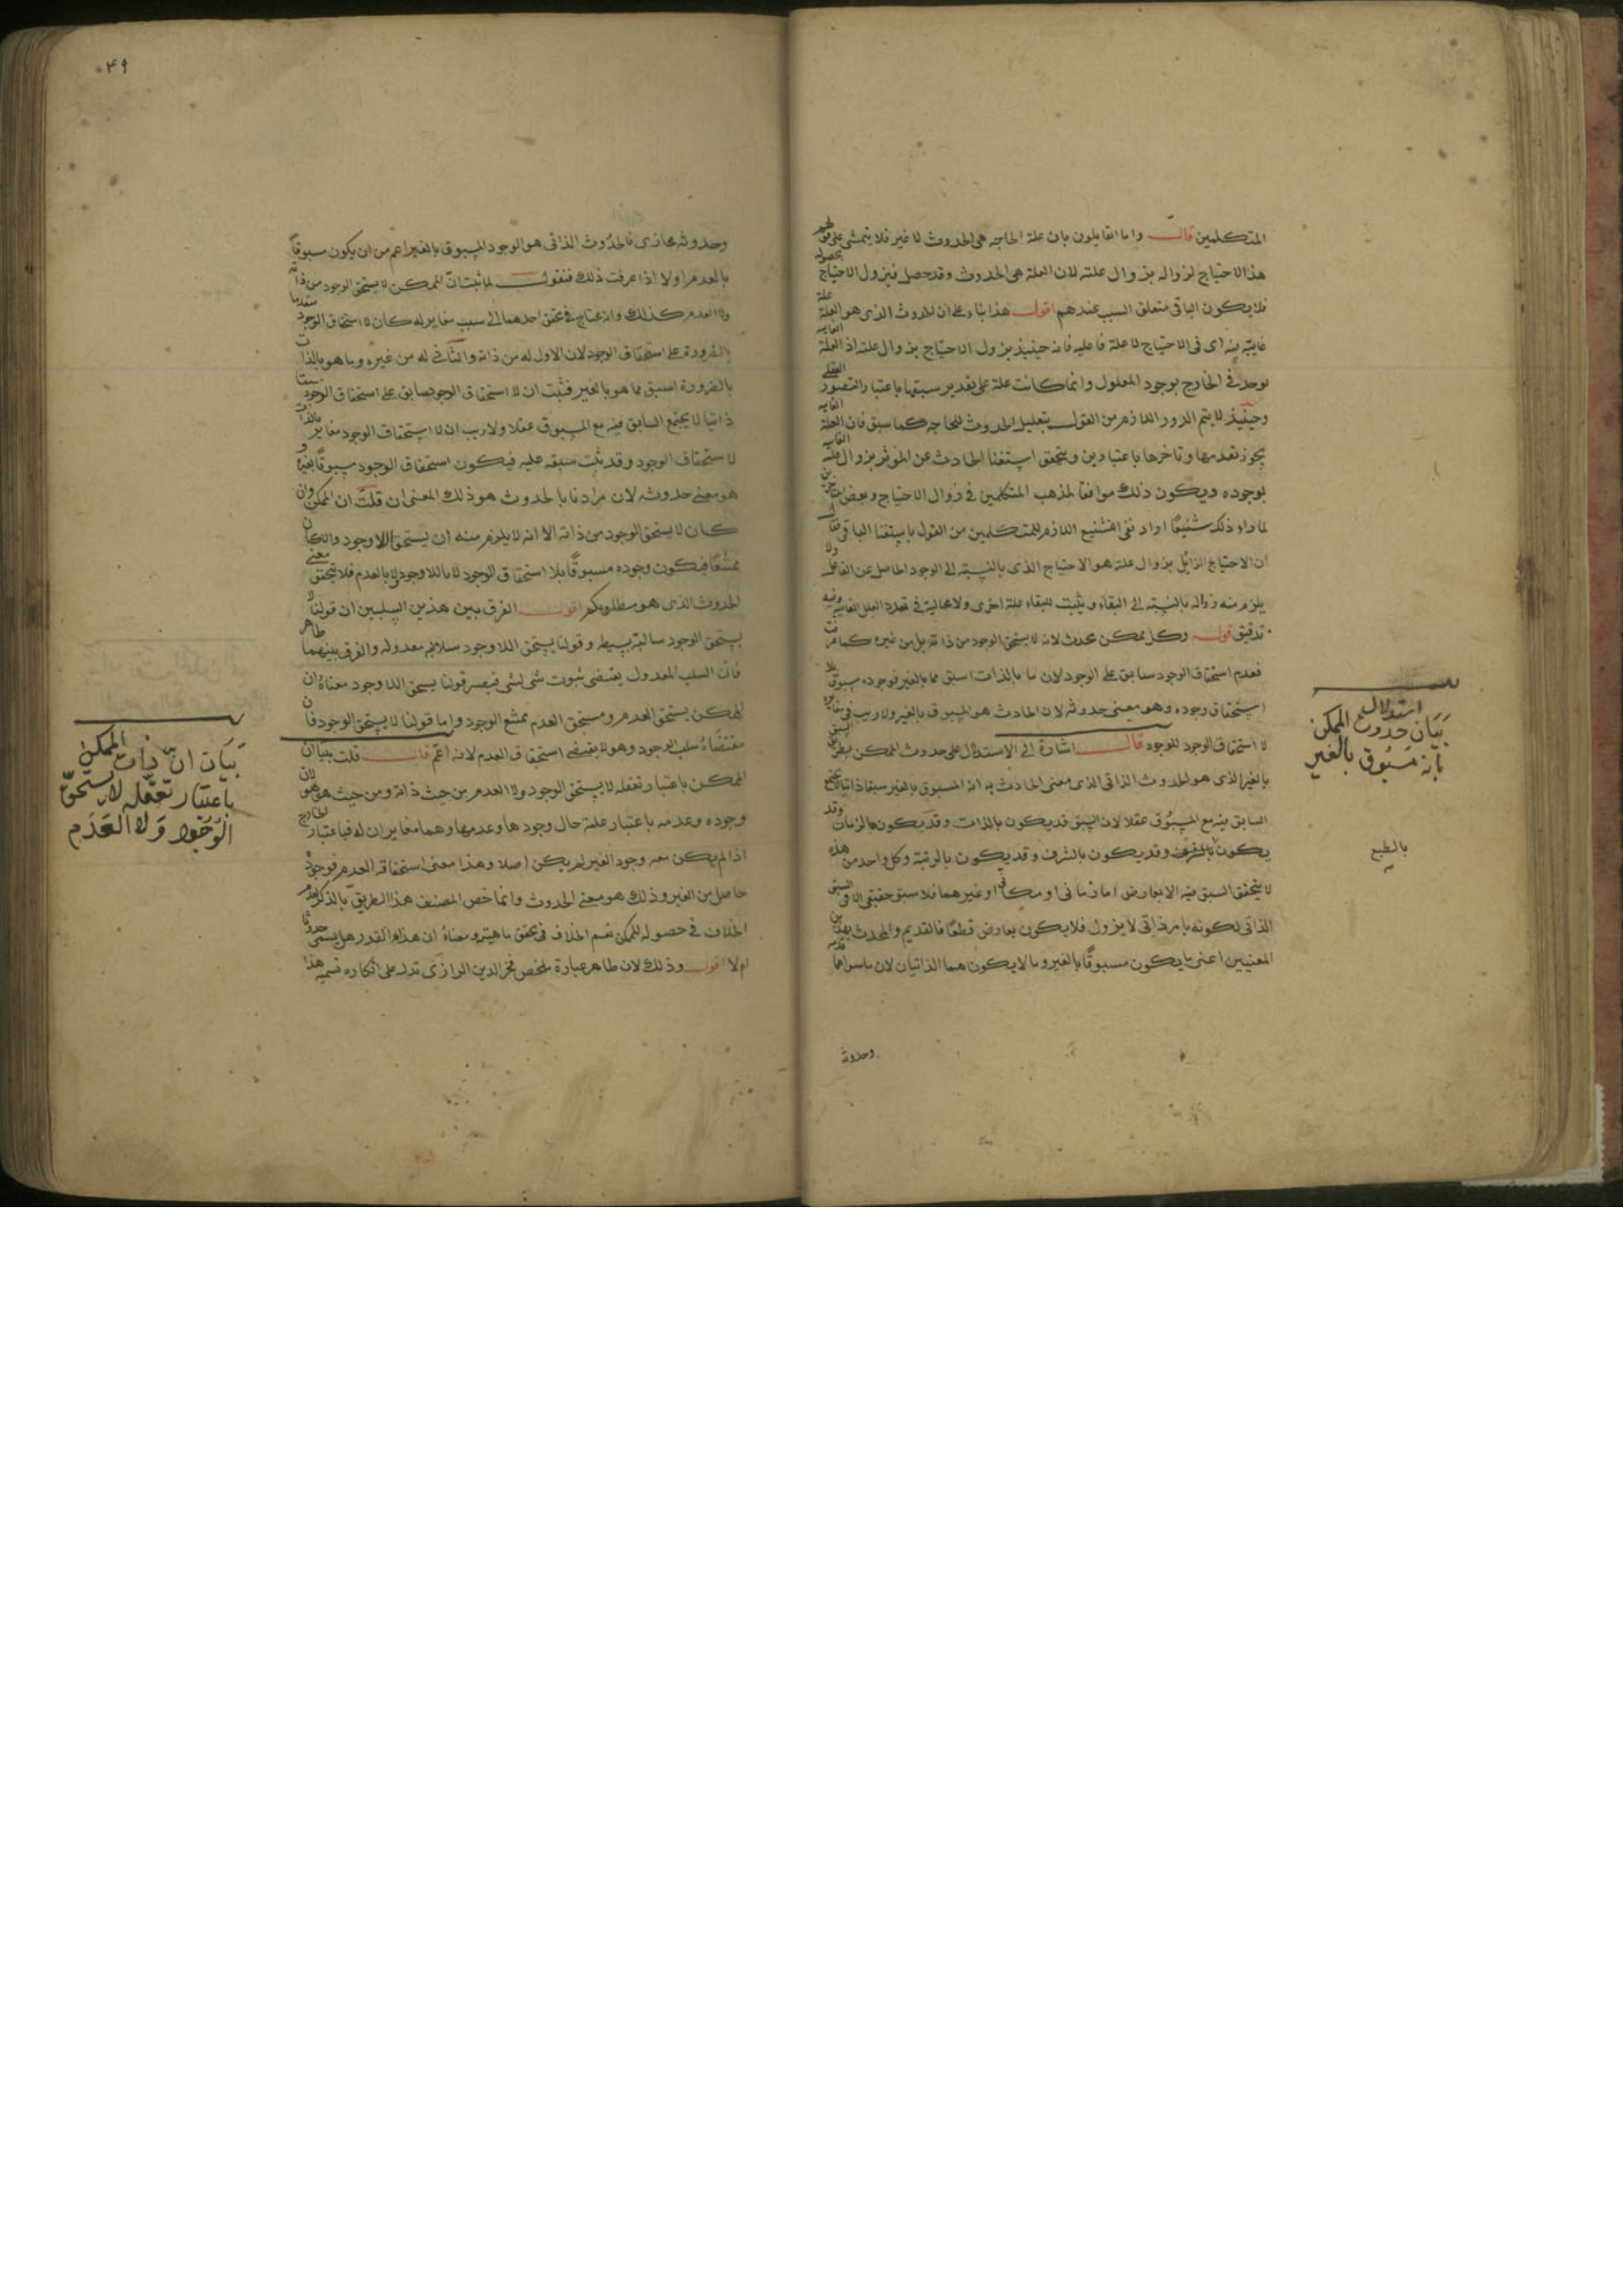 المتكلمين قال واما القايلون بان علة الحاجه هى الحدوث لا غير فلا يتمشى على قولهم
هذا الاحتياج لزواله بزوال علته لان العلة هى الحدوث وقد حصل فيزول الاحتياج بحصوله
فلا يكون الباقى متعلق السبب عندهم اقول هذا بناء على ان الحدوث الذى هو العلة علة
غايية اى فى الاحتياج لا علة فاعليه فانه حينيذ يزول الاحتياج بزوال علته اذ العلة الغاييه
توجد فى الخارج بوجود المعلول وانما كانت علة على تقدير سبقها باعتبار التصور العقلى
وحينيذ لا يتم الدور اللازم من القول بتعليل الحدوث للحاجه كما سبق فان العلة الغاييه
يجوز تقدمها وتاخرها باعتبارين ويتحقق استغنا الحادث عن الموثر بزوال علته الغاييه
بوجوده ويكون ذلك موافقا لمذهب المتكلمين فى زوال الاحتياج وبعض المتاخرين
لما راء ذلك شنيعًا اراد نفى التشنيع اللازم للمتكلمين من القول باستغنا الباقى فقال
ان الاحتياج الزايل بزوال علته هو الاحتياج الذى بالنسبة الى الوجود الحاصل عن الفاعل ولا
يلزم منه زواله بالنسبة الى البقاء ويثبت للبقاء علة اخرى ولا محالية فى تعدد العلل الغاييه وفيه
تدقيق قوله وكل ممكن محدث لانه لا يستحق الوجود من ذاته بل من غيره كما عرفت
فعدم استحقاق الوجود سابق على الوجود لان ما بالذات اسبق مما بالغير فوجوده مسبوق بلا
استحقاق وجوده وهو معنى حدوثه لان الحادث هو المسبوق بالغير ولا ريب فى مغايرة
لا استحقاق الوجود للوجود قال اشارة الى الاستدلال على حدوث الممكن بطريق السبق
بالغير الذى هو الحدوث الذاتى الذى معنى الحادث به انه المسبوق بالغير سبقا ذاتيا لا يجتمع
السابق فيه مع المسبوق عقلا لان السبق قد يكون بالذات وقد يكون بالزمان وقد
يكون بالطبع وقد يكون بالشرف وقد يكون بالرتبة وكل واحد من هذه
لا يتحقق السبق فيه الا بعارض اما زمانى او مكانى او غيرهما فلا سبق حقيقى الا فى السبق
الذاتى لكونه بامر ذاتى لا يزول فلا يكون بعارض قطعًا فالقديم والمحدث بهذين
المعنيين اعنى ما يكون مسبوقًا بالغير وما لا يكون هما الذاتيان لان ما سواهما قدمه
وحدوثه
استدلال
بيان حدوث الممكن
بانه مسبوق بالغير
بالطبع
٤٩
وحدوثه مجازى فالحدوث الذاتى هو الوجود المسبوق بالغير اعم من ان يكون مسبوقًا
بالعدم او لا اذا عرفت ذلك فنقول لما ثبت ان الممكن لا يستحق الوجود من ذاته
ولا العدم كذلك وانه محتاج فى تحقق احدهما الى سبب مغاير له كان لا استحقاق الوجود متقدما
بالضرورة على استحقاق الوجود لان الاول له من ذاته والثانى له من غيره وما هو بالذات
بالضرورة اسبق مما هو بالغير فثبت ان لا استحقاق الوجود سابق على استحقاق الوجود سبقا
ذاتيا لا يجتمع السابق فيه مع المسبوق عقلا ولا ريب ان لا استحقاق الوجود مغاير بالذات
لاستحقاق الوجود وقد ثبت سبقه عليه فيكون استحقاق الوجود مسبوقًا بغيره و
هو معنى حدوثه لان مرادنا بالحدوث هو ذلك المعنى ان قلت ان الممكن وان
كان لا يستحق الوجود من ذاته الا انه لا يلزم منه ان يستحق اللاوجود والا لكان
ممتنعًا فيكون وجوده مسبوقًا بلا استحقاق الوجود لا باللاوجود ولا بالعدم فلا يتحقق معنى
الحدوث الذى هو مطلوبكم اقول الفرق بين هذين السلبين ان قولنا لا
يستحق الوجود سالبة بسيطه وقولنا يستحق اللاوجود سالبة معدوله والفرق بينهما ظاهر
فان السلب المعدول يقتضى ثبوت شى لشى فيصير قولنا يستحق اللاوجود معناه ان
الممكن يستحق العدم ومستحق العدم ممتنع الوجود واما قولنا لا يستحق الوجود فان
مقتضاه سلب الوجود وهو لا يقتضى استحقاق العدم لانه اعم قال قلت بيناان
الممكن باعتبار تعقله لا يستحق الوجود ولا العدم من حيث ذاته ومن حيث هو هو لان
وجوده وعدمه باعتبار علته حال وجودها وعدمها وهما مغايران له فباعتبار الخارج
اذا لم يكن معه وجود الغير لم يكن اصلا وهذا معنى استحقاقه العدم فوجوده
حاصل من الغير وذلك هو معنى الحدوث وانما خص المصنف هذا الطريق بالذكر لعدم
الخلاف فى حصوله للممكن نعم الخلاف فى تحقق ماهيته ومعناه ان هذا القدر هل يسمى حدوثا
ام لا اقول وذلك لان ظاهر عبارة ملخص فخر الدين الرازى تدل على انكاره تسميه هذا
بيان ان ذات الممكن
باعتبار تعقله لا يستحق
الوجود ولا العدم